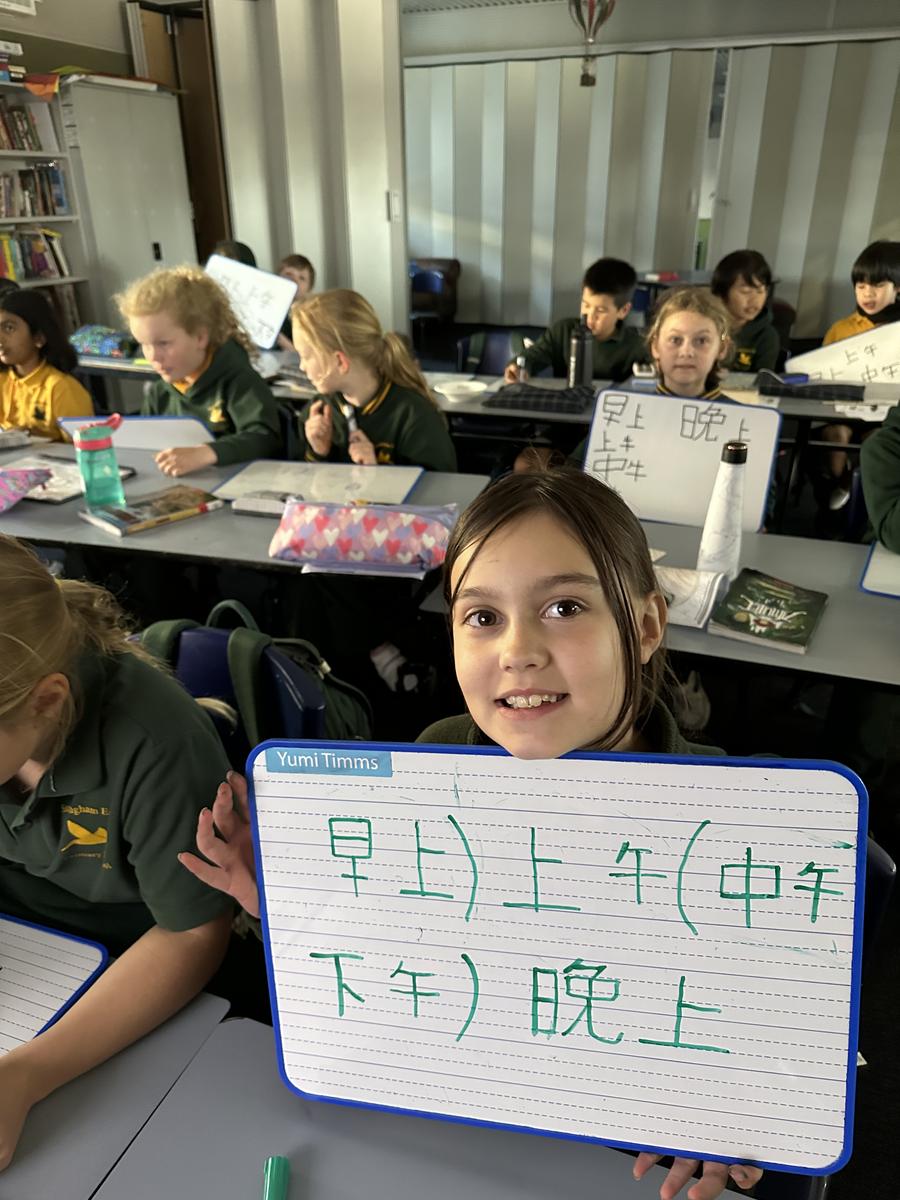 上午
上午
中午
早上
晚上
上午
中午
Yumi Timms
早上) 上午 (中午
下午) 晚上